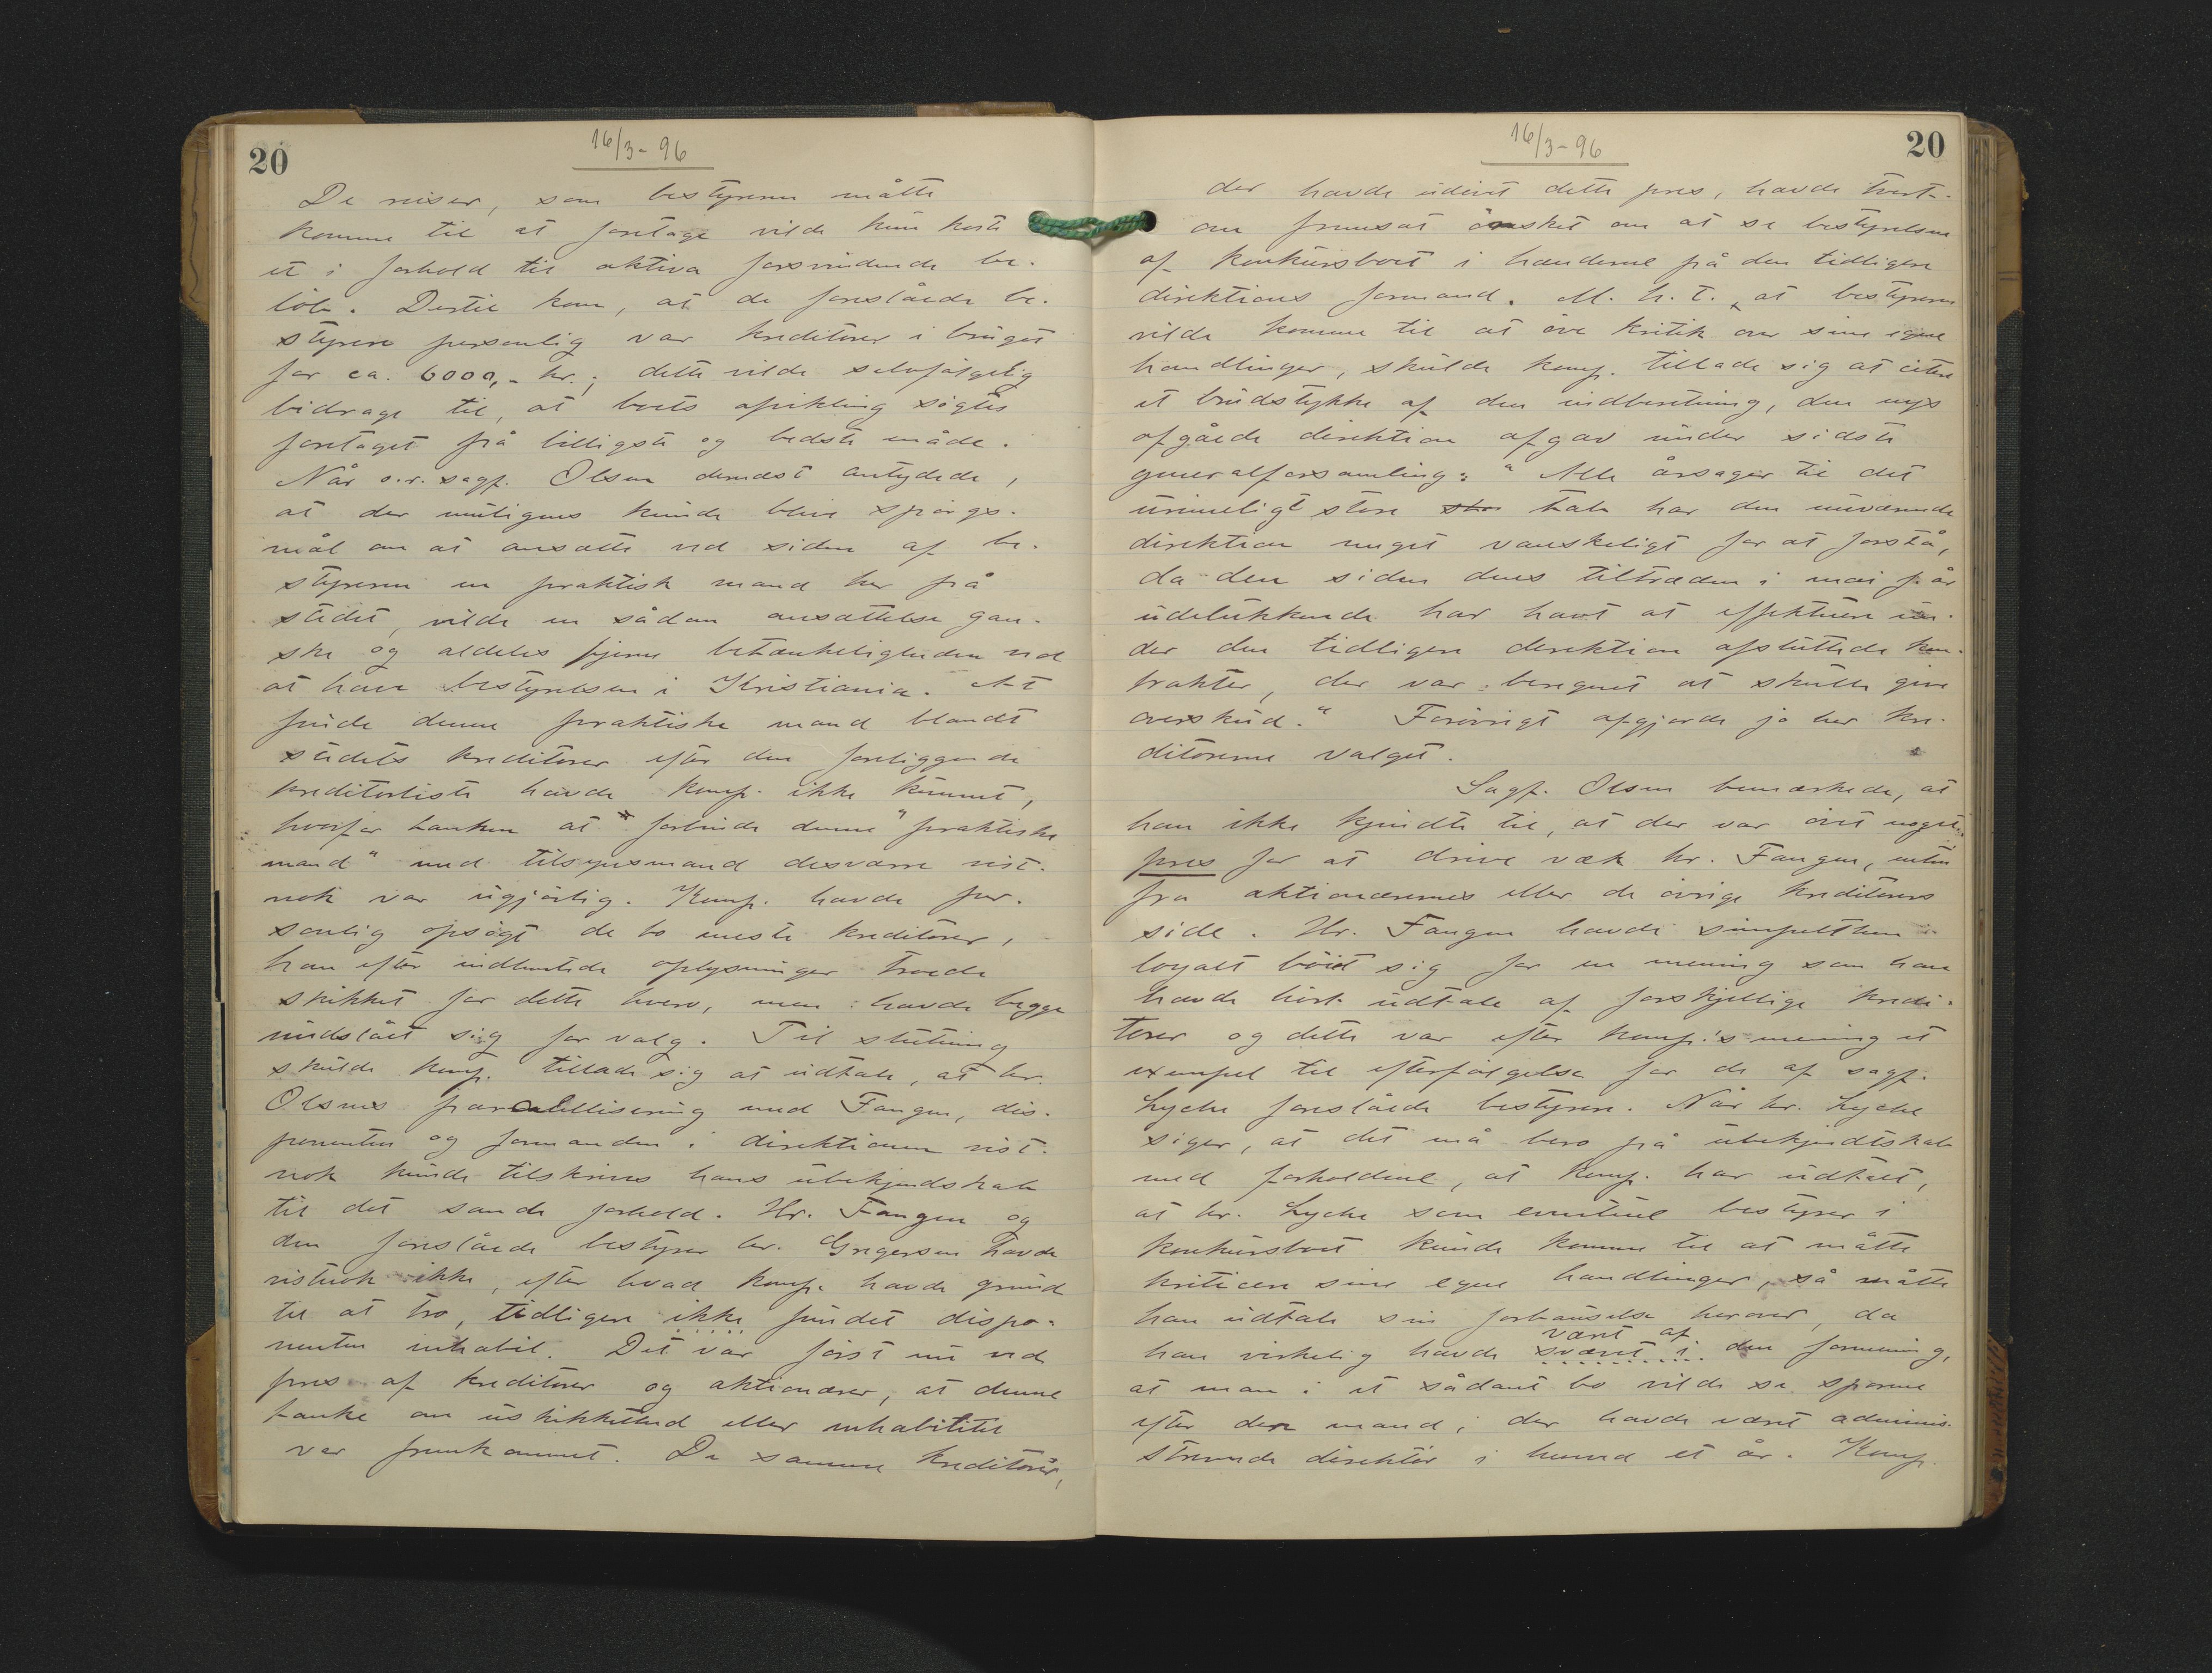 20
16/3-96
De reiser, som bestyreren måtte
komme til at foretage vilde kun koste
et i forhold til aktiva forsvindende be-
löb. Dertil kom, at de foreslåede be-
styrere personlig var kreditorer i bruget
for ca. 6000,- kr.; dette vilde selvfölgelig
bidrage til, at boets afvikling sögtes
foretaget på billigste og bedste måde.
Når o.r.sagf. Olsen dernæst antydede,
at der muligens kunde blive spörgs-
mål om at ansætte ved siden af be-
styreren en praktisk mand her på
stedet, vilde en sådan ansættelse gan-
ske og aldeles fjerne betænkeligheden ved
at have bestyrelsen i Kristiania. At
finde denne praktiske mand blandt
stedets kreditorer efter den foreliggende
kreditorliste havde komp. ikke kunnet,
hvorfor tanken at forbinde denne "praktiske
mand" med tilsynsmand desværre vist-
nok var ugjörlig. Komp. havde per-
sonlig opsögt de to meste kreditorer,
han efter indhentede oplysninger troede
skikket for dette hverv, men havde begge
undslåét sig for valg. Til slutning
skulde komp. tillade sig at udtale, at hr.
Olsens parallellisering med Fangen, dis-
ponenten og formanden i direktionen vist-
nok kunde tilskrives hans ubekjendskab
til det sande forhold. Hr. Fangen og
den foreslåede bestyrer hr. Gregersen havde
vistnok ikke, efter hvad komp. havde grund
til at tro, tidligere ikke fundet dispo-
nenten inhabil. Det var först nu ved
pres af kreditorer og aktionærer, at denne
tanke om uskikkethed eller inhabilitet
var fremkommet. De samme kreditorer,
16/3-96
20
der havde udövet dette pres, havde
om fremsat önsket om at se bestyrelsen
af konkursboet i hænderne på den tidligere
direktions formand. M. h. t. at bestyreren
vilde komme til at öve kritik over sine egne
handlinger, skulde komp. tillade sig at citere
et brudstykke af den indberetning, den nys
afgåede direktion afgav under sidste
generalforsamling: "Alle årsager til det
urimeligt store tab har den nuværende
direktion meget vanskeligt for at forstå,
da den siden dens tiltræden i mai f. år
udelukkende har havt at effektuere un-
der den tidligere direktion afsluttede kon-
trakter, der var beregnet at skulle give
overskud." Forövrigt afgjorde jo her kre-
ditorerne valget.
Sagf. Olsen bemærkede, at
han ikke kjendte til, at der var övet noget
pres for at drive væk hr. Fangen, enten
fra aktionærernes eller de övrige kreditorers
side. Hr. Fangen havde simpelthen
loyalt böiet sig for en mening som han
havde hört udtale af forskjellige kredi-
torer og dette var efter komp.'s mening et
exempel til efterfölgelse for de af sagf.
Lyche foreslåede bestyrere. Når hr. Lyche
siger, at det må bero på ubekjendtskab
med forholdene, at komp. har udtalt,
at hr. Lyche som eventuel bestyrer i
konkursboet kunde komme til at måtte
kriticere sine egne handlinger, så måtte
han udtale sin forbauselse herover, da
været af
han virkelig havde sværet i den formening,
at man i et sådant bo vilde se sporene
efter den mand, der havde været adminis-
trerende direktör i henved et år. Komp.